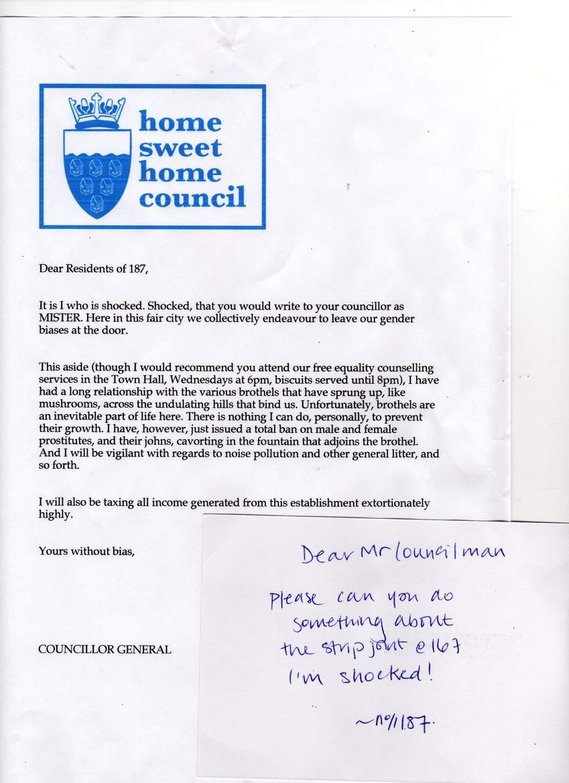 home
sweet
home
council
Dear Residents of 187,
It is I who is shocked. Shocked, that you would write to your councillor as
MISTER. Here in this fair city we collectively endeavour to leave our gender
biases at the door.
This aside (though I would recommend you attend our free equality counselling
services in the Town Hall, Wednesdays at 6pm, biscuits served until 8pm), I have
had a long relationship with the various brothels that have sprung up, like
mushrooms, across the undulating hills that bind us. Unfortunately, brothels are
an inevitable part of life here. There is nothing I can do, personally, to prevent
their growth. I have, however, just issued a total ban on male and female
prostitutes, and their johns, cavorting in the fountain that adjoins the brothel.
And I will be vigilant with regards to noise pollution and other general litter, and
so forth.
I will also be taxing all income generated from this establishment extortionately
highly.
Yours without bias,
COUNCILLOR GENERAL
Dear Mr Councilman
Please can you do
something about
the strip joint @ 167
I'm shocked!
~ No/187.